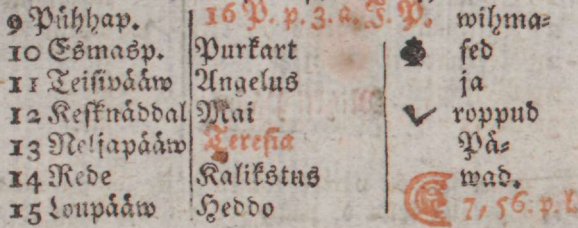 9 Pühhap. 16 P. p. 3. a. J. P. wihma⸗
10 Esmasp. Purkart sed
11 Teisiwääw Angelus ja
12 Kesknäddal Mai roppud
13 Neljapääw Teresia Pä⸗
14 Rede Kalikstus wad.
15 Loupääw Heddo 7, 56. p. L